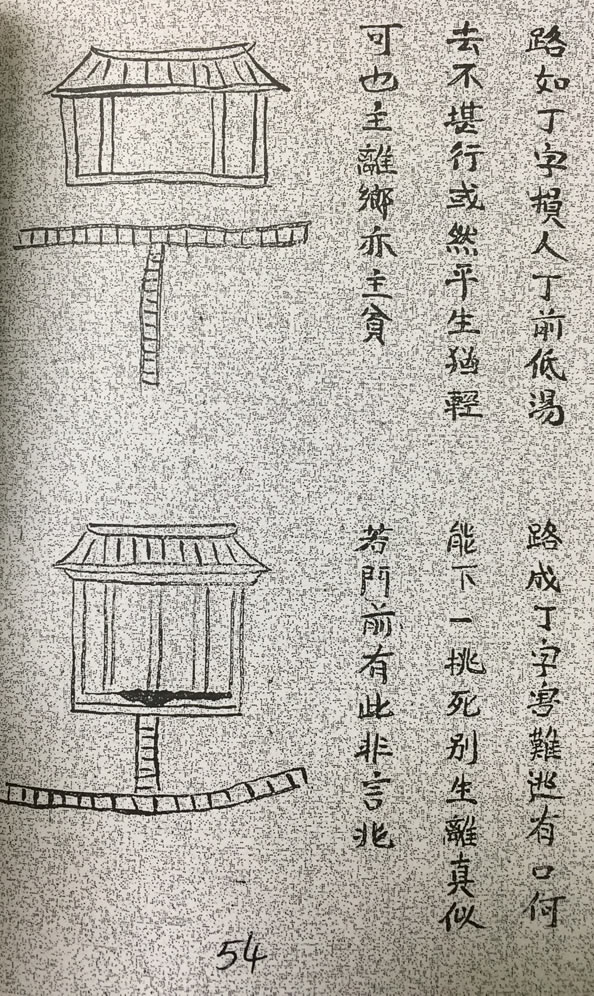 路如丁字損人丁前低湯
去不堪行或然平生猶輕
可也主離鄉亦主貧
路成丁字害難逃有口何
能下一挑死别生離真似
若門前有此非言兆
54